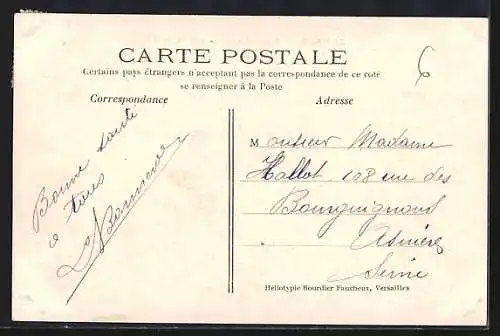 CARTE POSTALE
Certains pays étrangers n'acceptent pas la correspondance de ce coté
se renseigner à la Poste
Correspondance
Adresse
6
Bonne santé
a tous
Monsieur Madame
Hallot 108 rue des
Bourguignons
Asnières
Seine
Héliotypie Bourdier Faucheux, Versailles